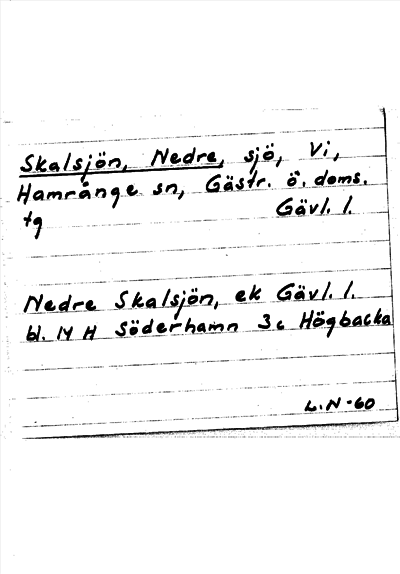 Skalsjön, Nedre, sjö, Vi,
Hamrånge sn, Gästr. ö. doms.
tg Gävl. l.
Nedre Skalsjön, ek Gävl. l.
bl. 14 H Söderhamn 3c Högbacka
L.N-60